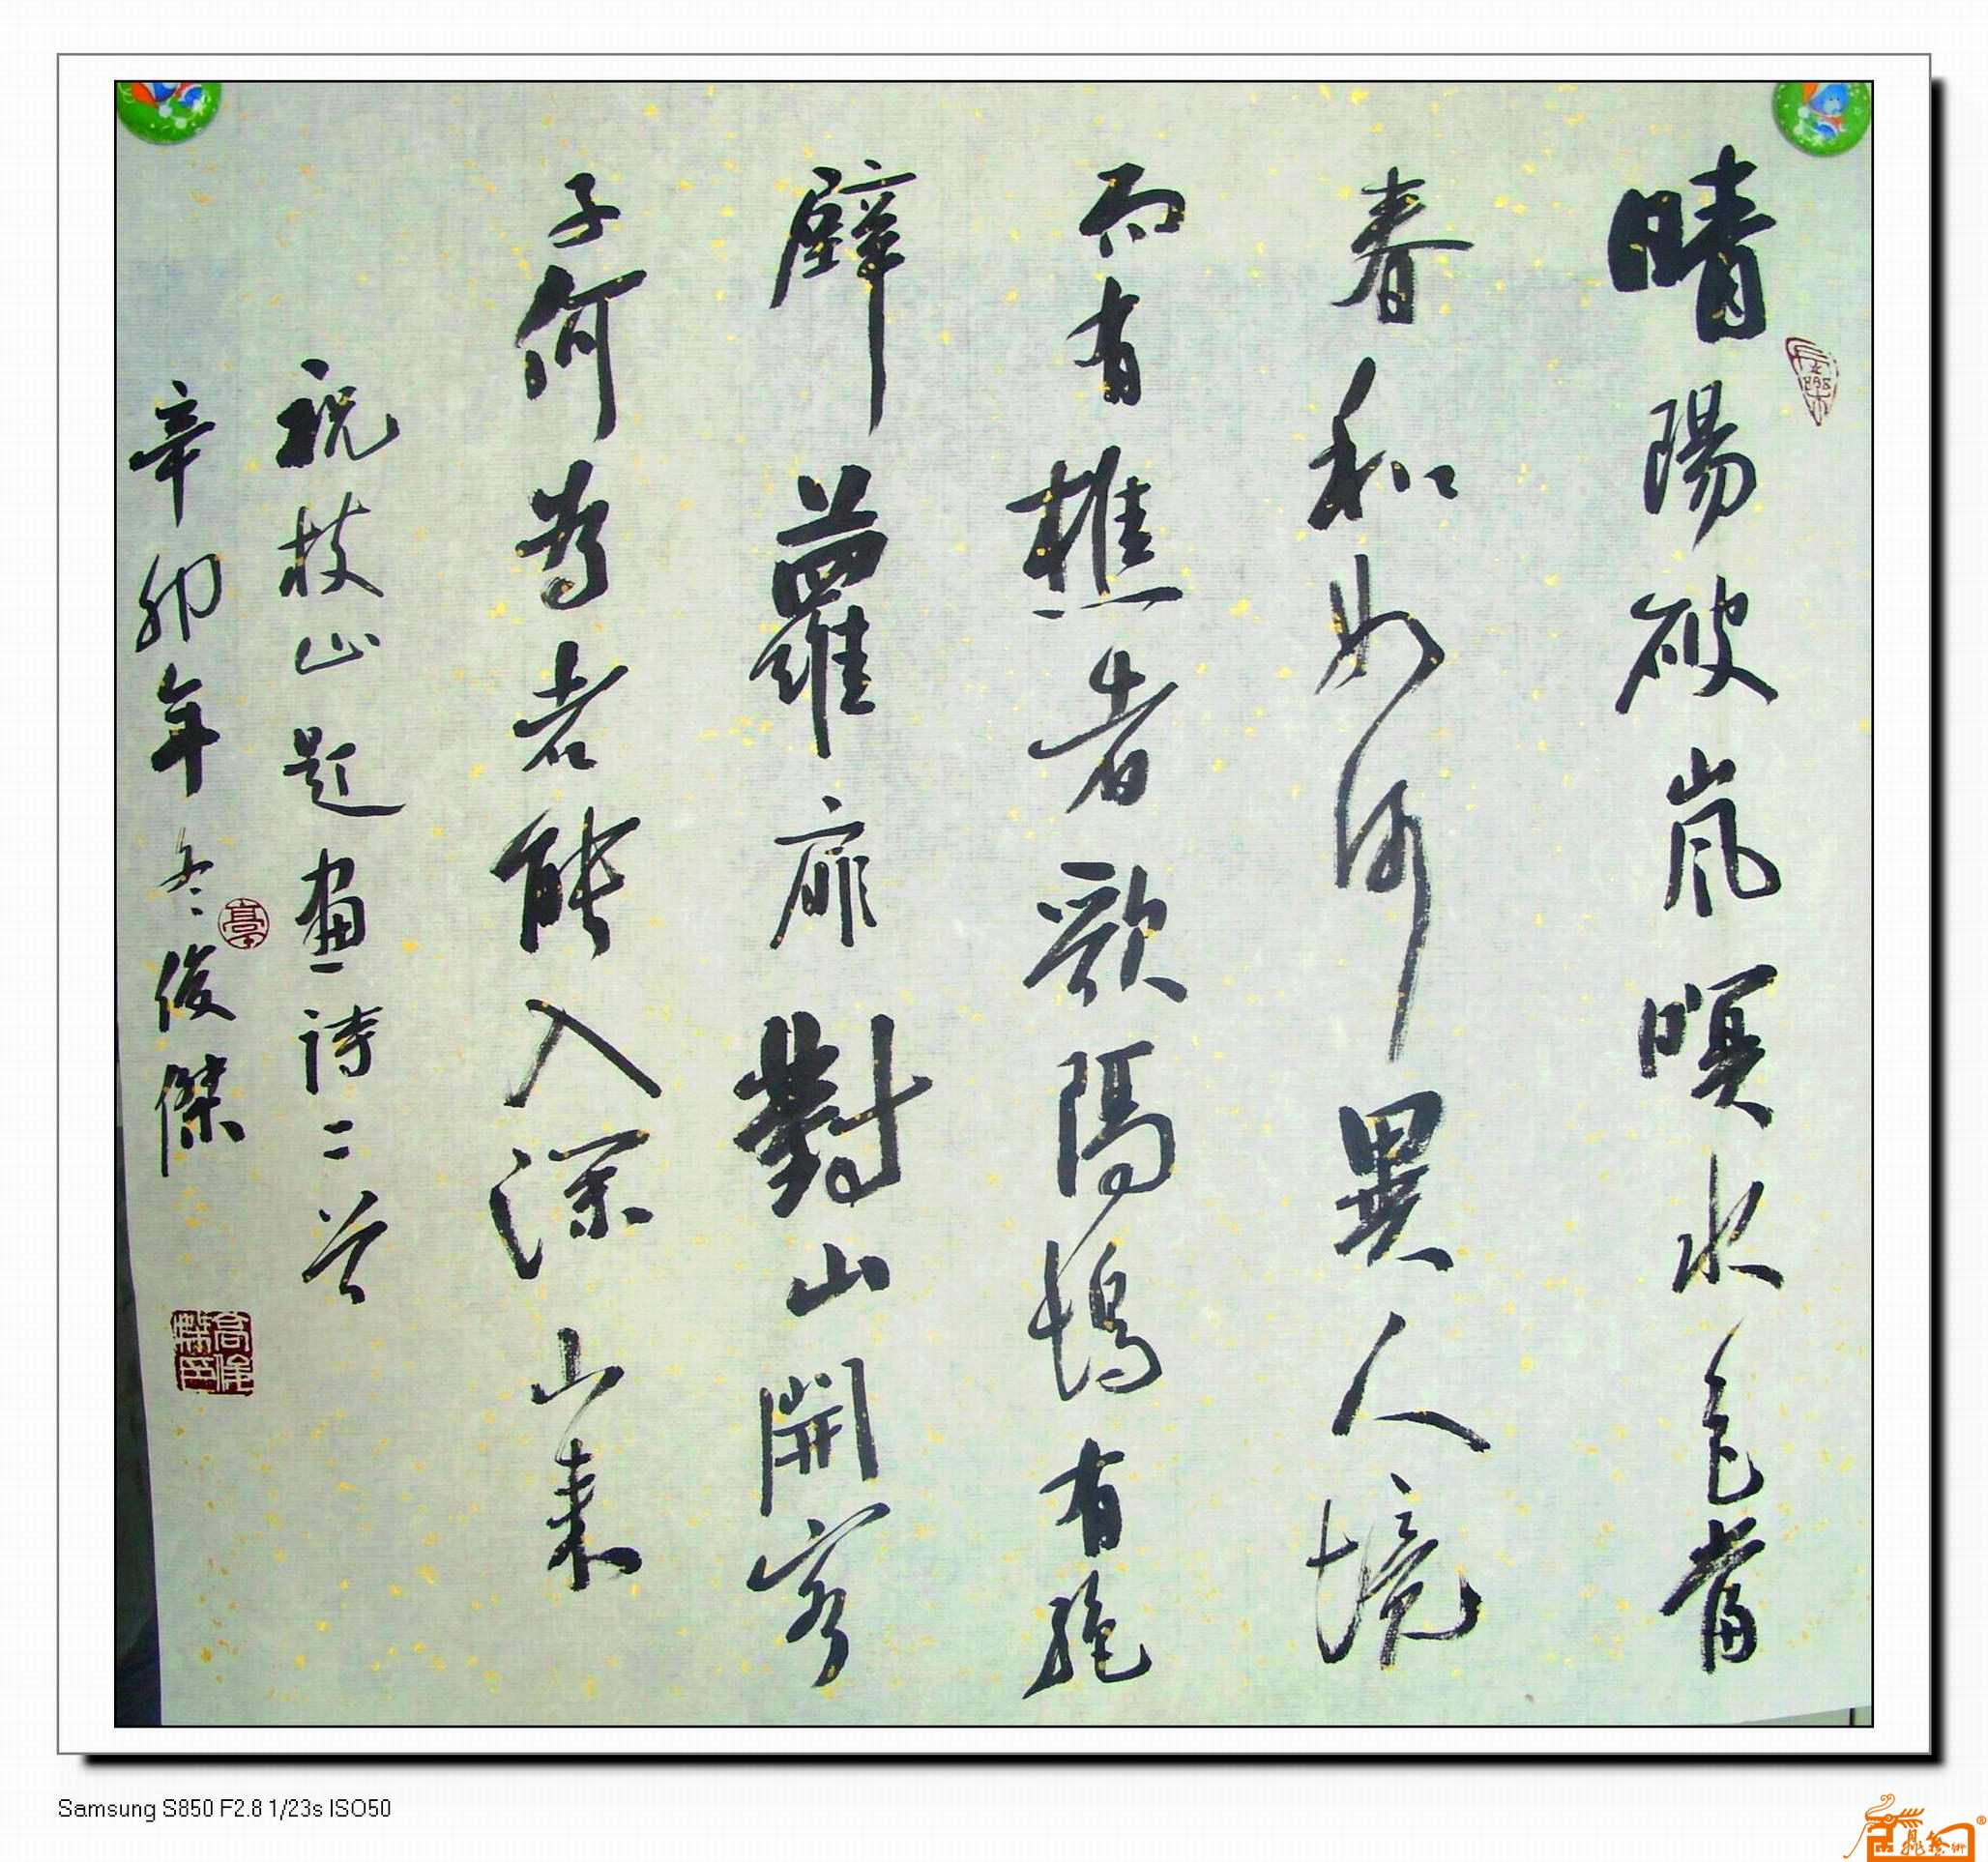 晴陽破嵐暝水色當
春和如何異人境
而有樵者歌隔塢有絕
壁蘿扉對山開寄
子何為者能入深山來
祝枝山題畫詩二首
辛卯年冬俊傑
Samsung S850 F2.8 1/23s ISO50